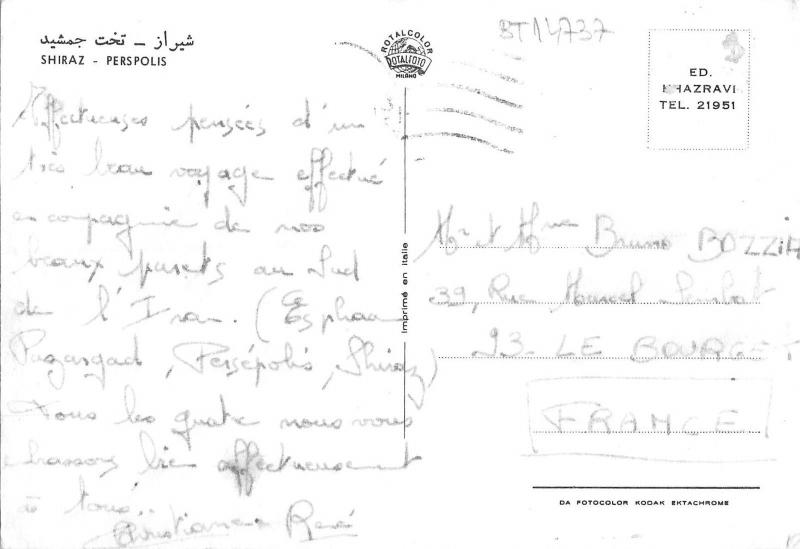 شیراز – تخت جمشید
SHIRAZ - PERSPOLIS
ROTALCOLOR
ROTALFOTO
MILANO
BT14737
ED.
KHAZRAVI
TEL. 21951
Affectueuses pensées d'un
très beau voyage effectué
en compagnie de nos
beaux parents au Sud
de l'Iran. (Esphaan
Pazargad, Persépolis, Shiraz)
Tous les quatre nous vous
embrassons bien affectueusement
à tous..
Christiane René
Imprimé en Italie
Mr et Mme Bruno BOZZIA
39, Rue Marcel Sembat
93 - LE BOURGET
FRANCE
DA FOTOCOLOR KODAK EKTACHROME